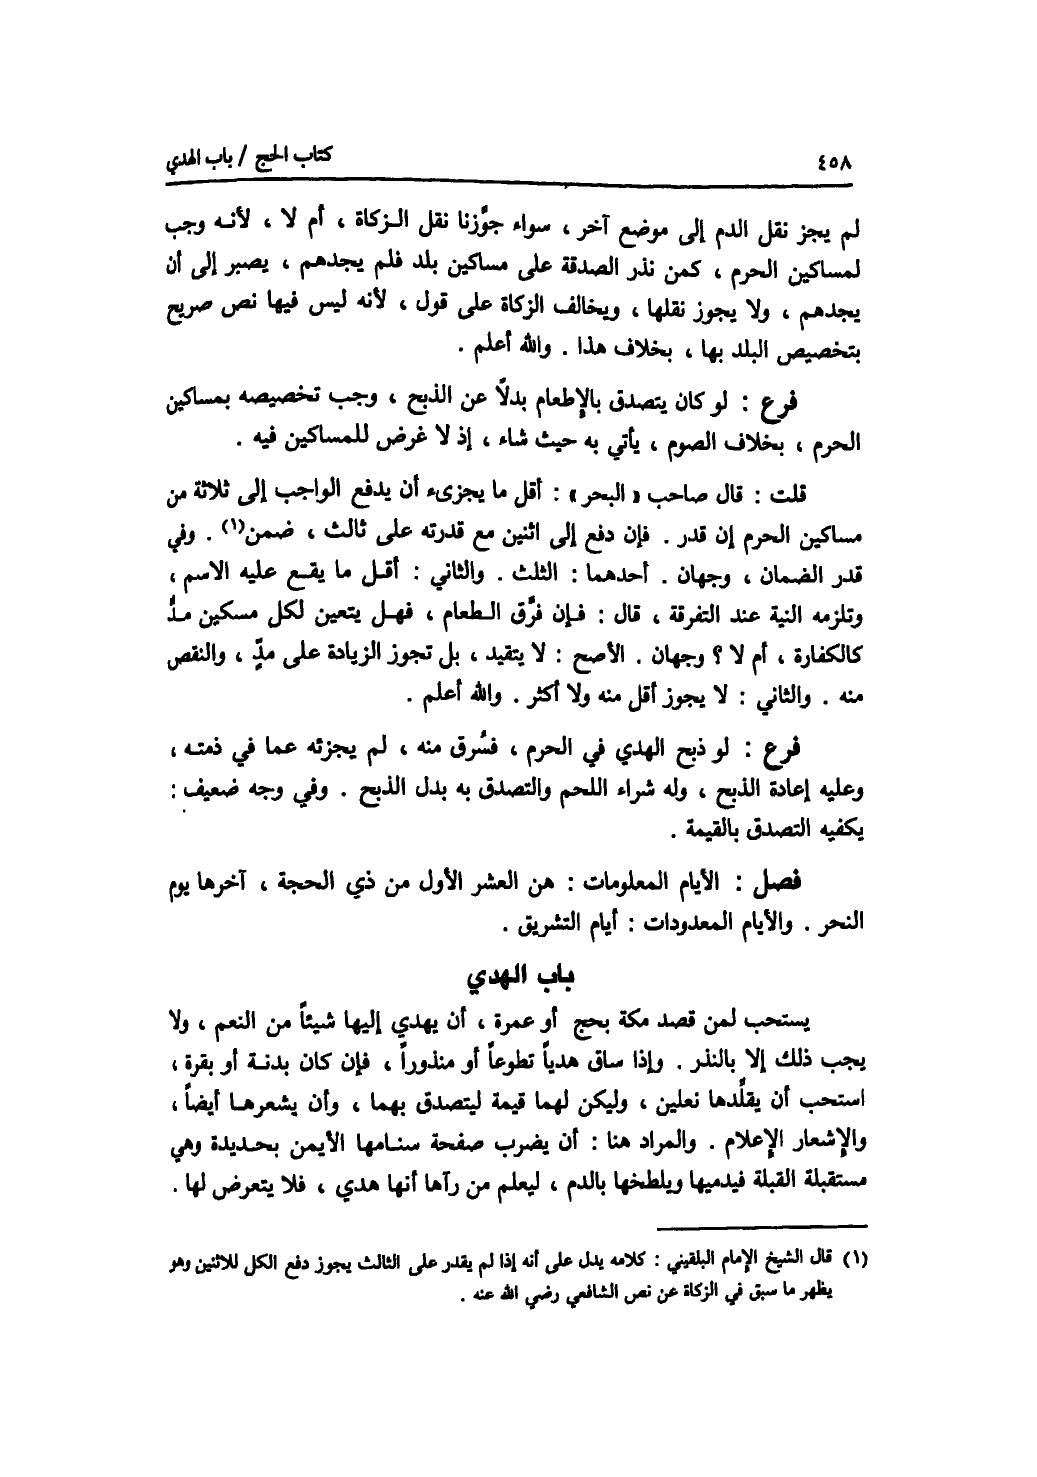 ٤٥٨ كتاب الحج / باب الهدي
لم يجز نقل الدم إلى موضع آخر ، سواء جوَّزنا نقل الـزكاة ، أم لا ، لأنـه وجب
لمساكين الحرم ، كمن نذر الصدقة على مساكين بلد فلم يجدهم ، يصبر إلى أن
يجدهم ، ولا يجوز نقلها ، ويخالف الزكاة على قول ، لأنه ليس فيها نص صريح
بتخصيص البلد بها ، بخلاف هذا . والله أعلم .
فرع : لو كان يتصدق بالإطعام بدلًا عن الذبح ، وجب تخصيصه بمساكين
الحرم ، بخلاف الصوم ، يأتي به حيث شاء ، إذ لا غرض للمساكين فيه .
قلت : قال صاحب « البحر » : أقل ما يجزىء أن يدفع الواجب إلى ثلاثة من
مساكين الحرم إن قدر . فإن دفع إلى اثنين مع قدرته على ثالث ، ضمن(١) . وفي
قدر الضمان ، وجهان . أحدهما : الثلث . والثاني : أقـل ما يقـع عليه الاسم ،
وتلزمه النية عند التفرقة ، قال : فـإن فرَّق الـطعام ، فهـل يتعين لكل مسكين مـدُّ
كالكفارة ، أم لا ؟ وجهان . الأصح : لا يتقيد ، بل تجوز الزيادة على مدٍّ ، والنقص
منه . والثاني : لا يجوز أقل منه ولا أكثر . والله أعلم .
فرع : لو ذبح الهدي في الحرم ، فسُرق منه ، لم يجزئه عما في ذمتـه ،
وعليه إعادة الذبح ، وله شراء اللحم والتصدق به بدل الذبح . وفي وجه ضعيف :
يكفيه التصدق بالقيمة .
فصل : الأيام المعلومات : هن العشر الأول من ذي الحجة ، آخرها يوم
النحر . والأيام المعدودات : أيام التشريق .
باب الهدي
يستحب لمن قصد مكة بحج أو عمرة ، أن يهدي إليها شيئاً من النعم ، ولا
يجب ذلك إلا بالنذر . وإذا ساق هدياً تطوعاً أو منذوراً ، فإن كان بدنـة أو بقرة ،
استحب أن يقلَّدها نعلين ، وليكن لهما قيمة ليتصدق بهما ، وأن يشعرهـا أيضاً ،
والإشعار الإعلام . والمراد هنا : أن يضرب صفحة سنـامها الأيمن بحـديدة وهي
مستقبلة القبلة فيدميها ويلطخها بالدم ، ليعلم من رآها أنها هدي ، فلا يتعرض لها .
(١) قال الشيخ الإمام البلقيني : كلامه يدل على أنه إذا لم يقدر على الثالث يجوز دفع الكل للاثنين وهو
يظهر ما سبق في الزكاة عن نص الشافعي رضي الله عنه .